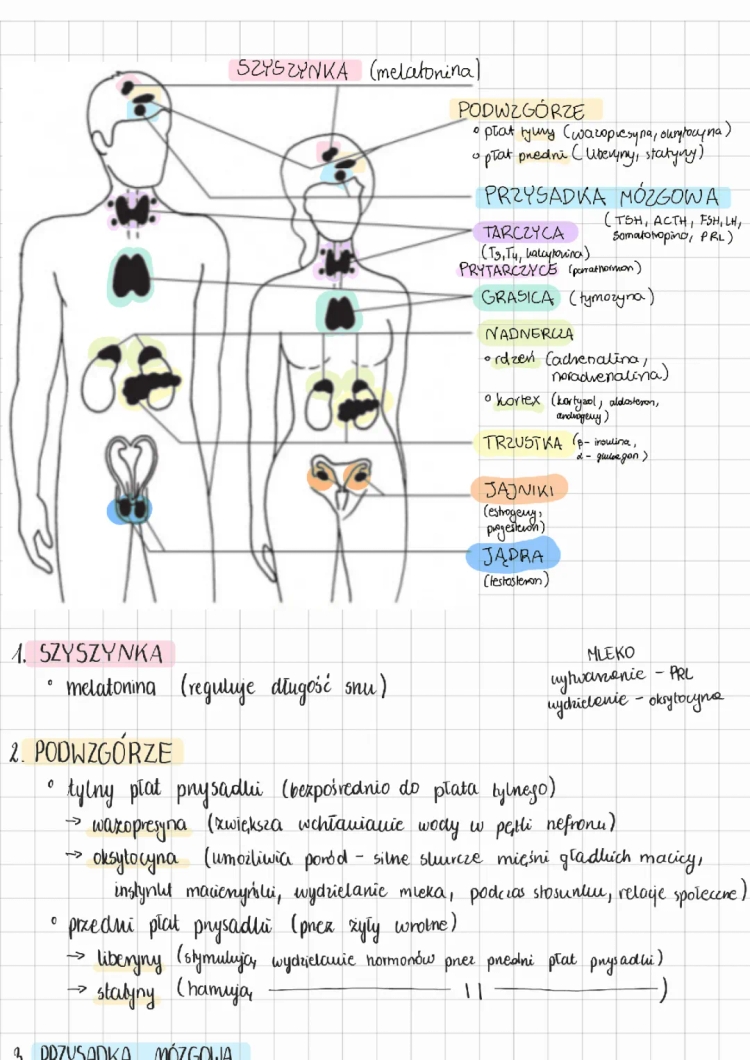 SZYSZYNKA (melatonina)
PODWZGÓRZE
° płat tylny (wazopresyna, oksytocyna)
° płat przedni (liberyny, statyny)
PRZYSADKA MÓZGOWA
(TSH, ACTH, FSH, LH,
somatotropina, PRL)
TARCZYCA
(T3, T4, kalcytonina)
PRYTARCZYCE (parathormon)
GRASICA (tymozyna)
NADNERCZA
° rdzeń (adrenalina,
noradrenalina)
° kortex (kortyzol, aldosteron,
androgeny)
TRZUSTKA (β- insulina,
α- glukagon)
JAJNIKI
(estrogeny,
progesteron)
JĄDRA
(testosteron)
1. SZYSZYNKA
° melatonina (reguluje długość snu)
MLEKO
wytwarzanie - PRL
wydzielanie - oksytocyna
2. PODWZGÓRZE
° tylny płat przysadki (bezpośrednio do płata tylnego)
→ wazopresyna (zwiększa wchłanianie wody w pętli nefronu)
→ oksytocyna (umożliwia poród - silne skurcze mięśni gładkich macicy,
instynkt macierzyński, wydzielanie mleka, podczas stosunku, relacje społeczne)
° przedni płat przysadki (przez żyły wrotne)
→ liberyny (stymulują wydzielanie hormonów przez przedni płat przysadki)
→ statyny (hamują ——— || ———)
3. PRZYSADKA MÓZGOWA